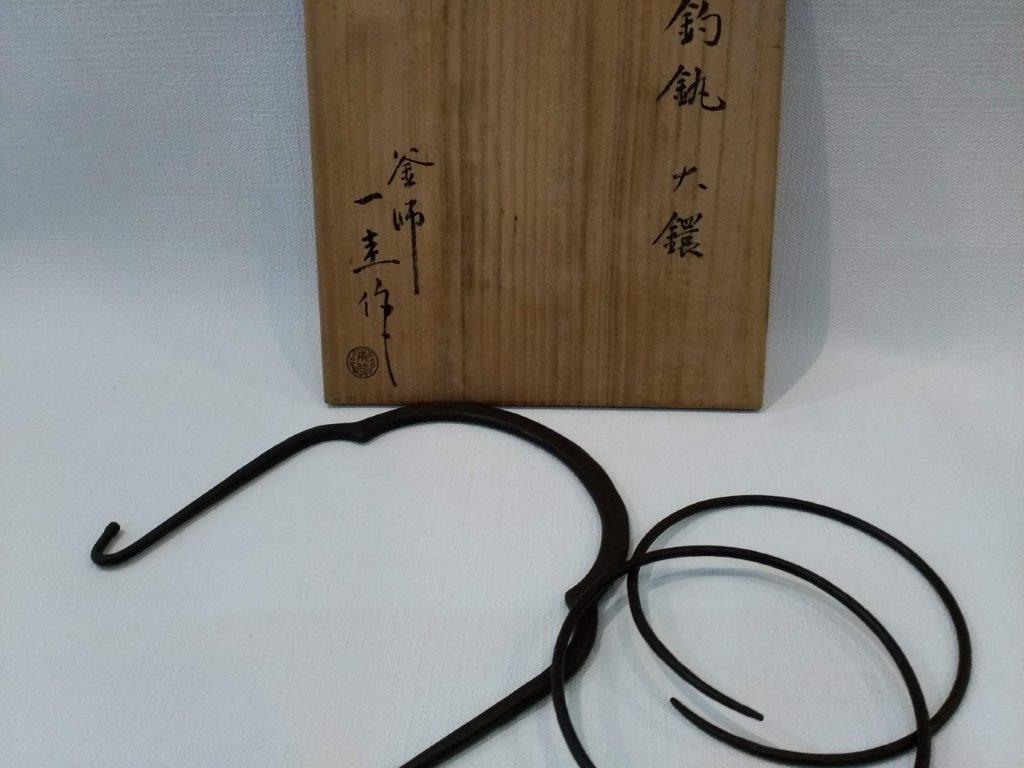 釣釻 大鐶
釜師
一圭作